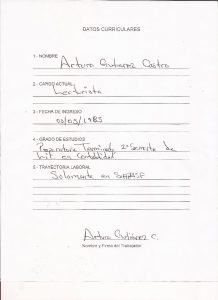 DATOS CURRICULARES
1.- NOMBRE
Arturo Gutierrez Castro
2.- CARGO ACTUAL
Lecturista
3.- FECHA DE INGRESO
4.- GRADO DE ESTUDIOS
Preparatoria Terminada 2º Semestre de
Lic. en Contabilidad
5.- TRAYECTORIA LABORAL
Solamente en
Arturo Gutiérrez C.
Nombre y Firma del Trabajador